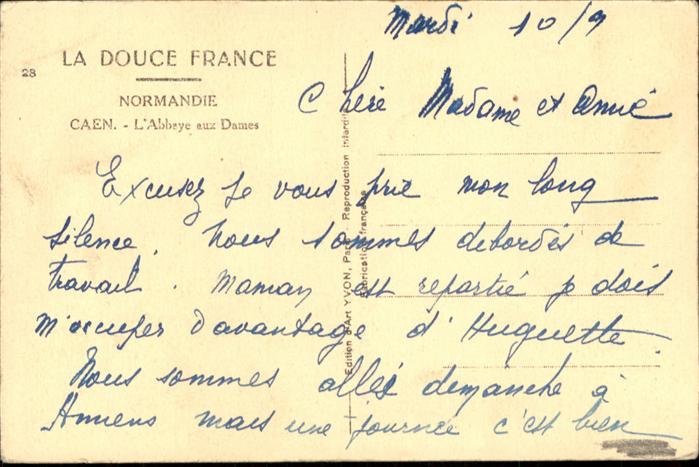 Mardi 10/9
LA DOUCE FRANCE
28
NORMANDIE
CAEN. - L'Abbaye aux Dames
Chère Madame et Amie
Excusez je vous prie mon long
silence. Nous sommes debordés de
travail. Maman est repartie je dois
m'occuper davantage d'Huguette
Nous sommes allés demanche à
Amiens mais une journée c'est bien
Edition d'Art YVON, Paris Reproduction interdite
Fabrication française